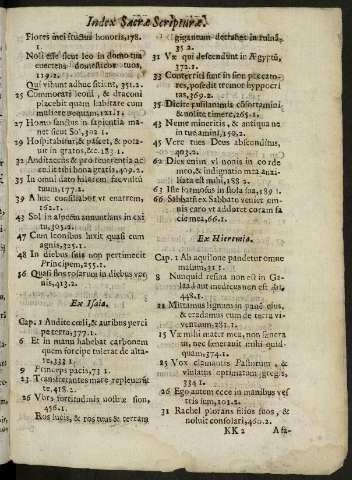 Index Sacræ Scripturæ.
Flores mei fructus honoris, 178.
1.
Noli esse sicut leo in domo tua
evertens domesticos tuos,
119.2.
Qui vibunt adhuc sitient, 351.2.
25 Commorari leoni, & draconi
placebit quam habitare cum
muliere nequam, 121.1.
27 Homo sanctus in sapientia ma-
net sicut Sol, 302 1.
29 Hospitabitur, & pascet, & pota-
vit in gratos, &c. 187.1.
32 Auditacens & pro reverentia ac-
cedit tibi bona gratis, 409.2.
35 In omni dato hilarem fac vultū
tuum, 177.2.
39 A huc consiliabor vt enarrem,
162.1.
43 Sol in aspectu annuntians in exi
tu, 305.2.
47 Cum leonibus lusit quasi cum
agnis, 325.1.
48 In diebus suis non pertimecit
Principem, 255.1.
50 Quasi flos rosarum in diebus ver
nis, 413.2.
Ex Isaia.
Cap. 1 Audite cœli, & auribus perci
pe terra, 377.1.
6 Et in manu habebat carbonem
quem forcipe tulerat de alta-
re, 333 1.
9 Princeps pacis, 73 1.
23 Transfretantes mare repleverūt
te, 458.2.
26 Vrbs fortitudinis nostræ sion,
456.1.
Ros lucis, & ros tuus & terram
gigantum detrahet in ruinā,
35 2.
31 Væ qui descendunt in Ægyptū,
372.1.
33 Conterriti sunt in sion peccato-
res, possedit tremor hypocri
tas, 369.2.
35 Dicite pusilanimis confortamini
& nolite timere, 265.1.
43 Neme mineritis, & antiqua ne
intueamini, 159.2.
45 Vere tues Deus absconditus,
403.2.
62 Dies enim vltionis in corde
meo, & indignatio mea auxi-
liata est mihi, 188.2.
63 Iste formosus in stola sua, 189 1.
66 Sabbatū ex Sabbato veniet om-
nis caro vt adoret coram fa
cie mea, 66.1.
Ex Hieremia.
Cap. 1 Ab aquilone pandetur omne
malum, 31 1.
8 Nunquid resina non est in Ga-
laad aut medicus non est ibi,
448.1.
11 Mittamus lignum in panē eius,
& eradamus eum de terra vi-
ventium, 281.1.
15 Væ mihi mater mea, non fœnera
tus, nec fœneravit mihi quid-
quam, 374.1.
25 Vox clamantis Pastorum, &
vlulatus optimatum gregis,
334 1.
26 Ego autem ecce in manibus ves
tris sum, 101.2.
31 Rachel plorans filios suos, &
noluit consolari, 460.2.
KK 2 Afa-